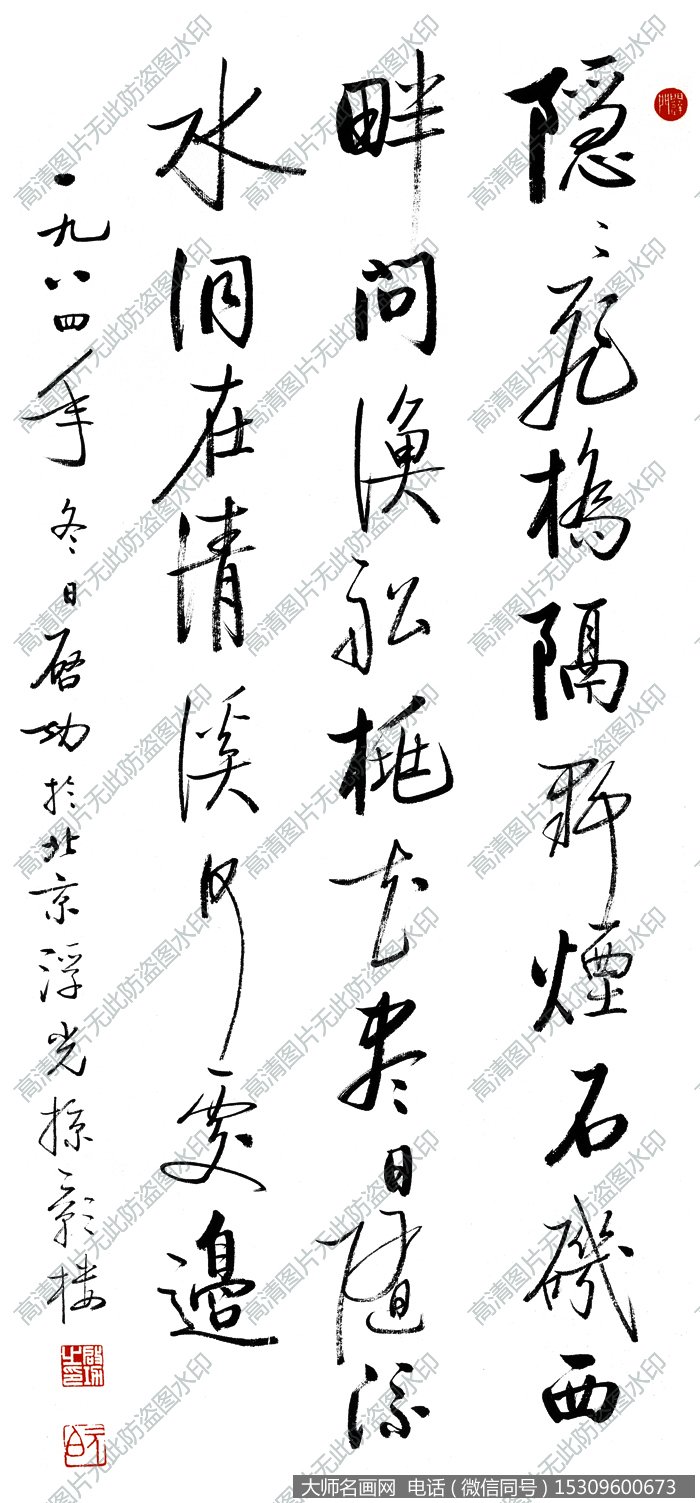 隱〻飛橋隔野煙石磯西
畔問漁船桃花盡日隨流
水洞在清溪何處邊
一九八四年冬日啓功於北京浮光掠影樓
啓功之印
元白
高清图片无此防盗图水印
大师名画网 电话（微信同号）15309600673